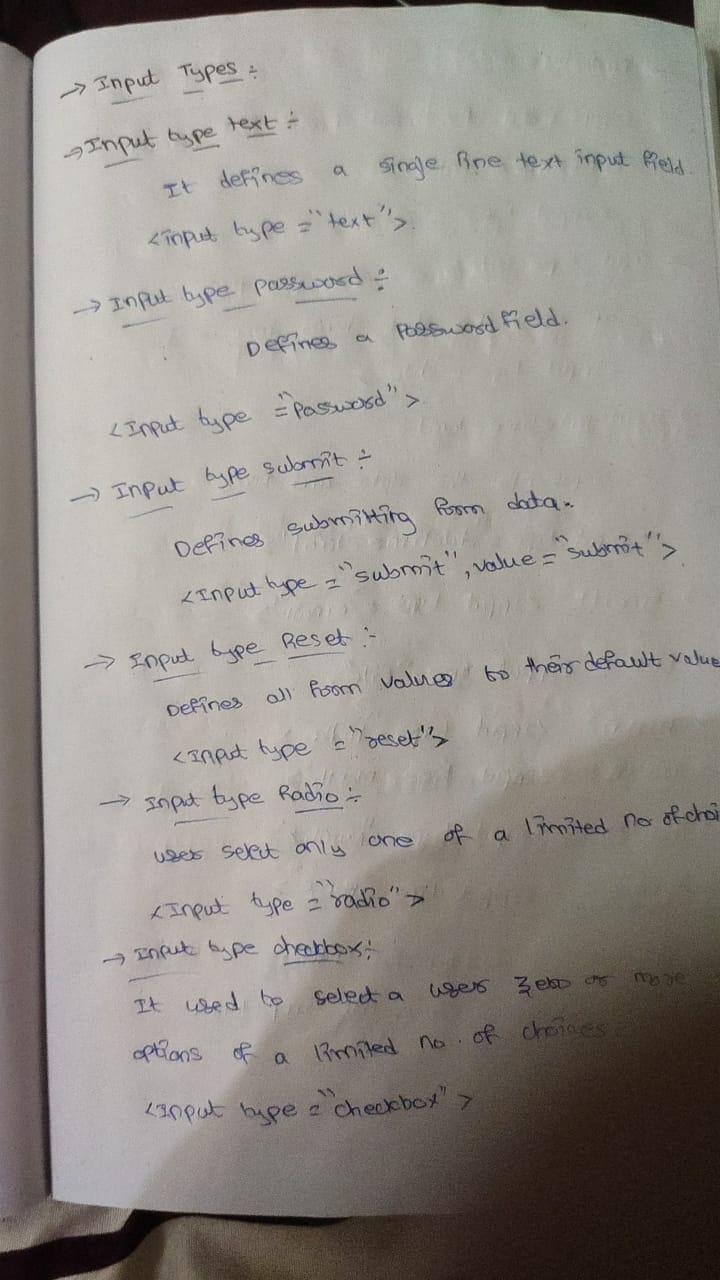 → Input Types ÷
→ Input type text ÷
It defines a single line text input field.
<input type = "text">
→ Input type password ÷
Defines a Password field.
<Input type = "Password">
→ Input type submit ÷
Defines submitting form data.
<Input type = "submit", value = "submit">
→ Input type Reset :-
Defines all form values to their default value
<Input type = "reset">
→ Input type Radio ÷
user select only one of a limited no of choi
<Input type = "radio">
→ Input type checkbox ÷
It used to select a user zero or more
options of a limited no. of choices
<Input type = "checkbox">